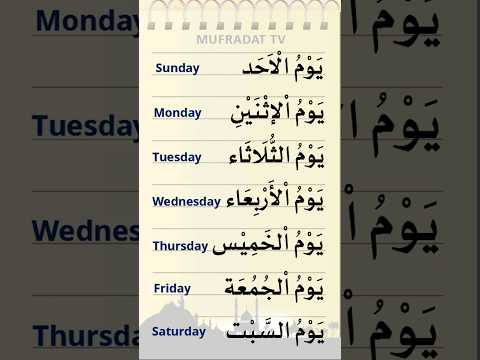 MUFRADAT TV
Sunday يَوْمُ الْاَحَد
Monday يَوْمُ الْإثْنَيْنِ
Tuesday يَوْمُ الثُّلَاثَاء
Wednesday يَوْمُ الْأَرْبِعَاء
Thursday يَوْمُ الْخَمِيْس
Friday يَوْمُ الْجُمُعَة
Saturday يَوْمُ السَّبْت